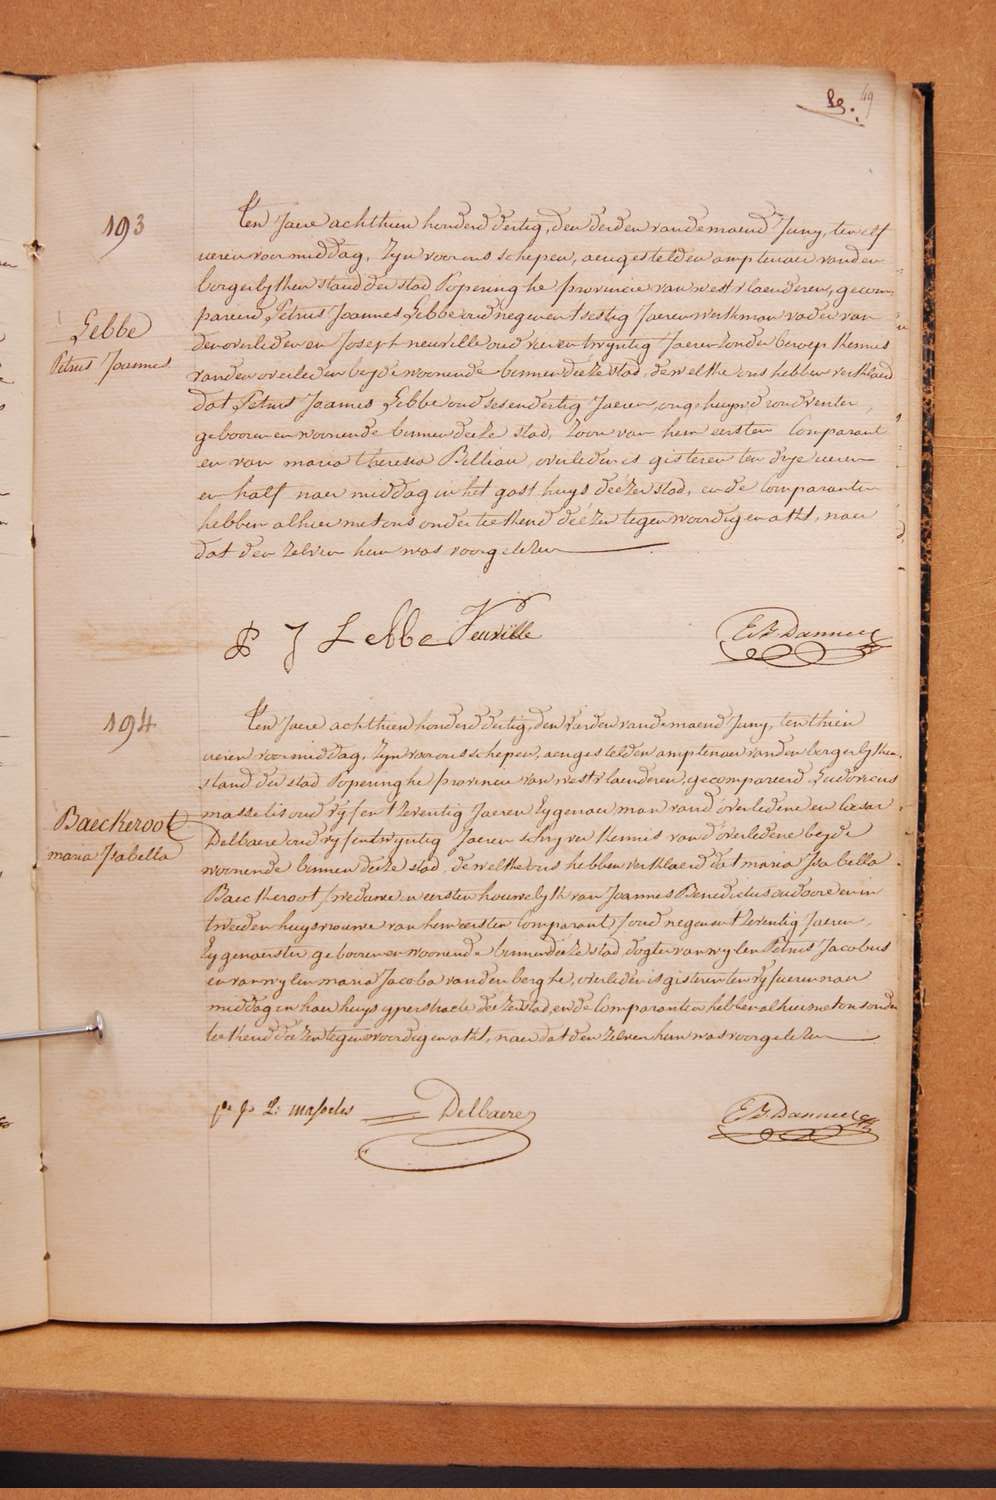 49
193
Lebbe
Petrus Joannes
Ten Jaere achthien honderd dertig, den derden van de maend Juny, ten elf
ueren voormiddag, zyn voor ons schepen, aengestelden amptenaer van den
borgerlyken stand der stad Poperinghe provincie van westvlaenderen, gecom-
pareerd Petrus Joannes Lebbe oud negenentsestig Jaeren werkman vader van
den overledenen Joseph neuville oud vierentwyntig Jaeren zonder beroep kennis
van den overleden beyde woonende binnen deeze stad, dewelke ons hebben verklaerd
dat Petrus Joannes Lebbe oud sesendertig Jaeren, ongehuyvd rondventer,
gebooren en woonende binnen deeze stad, zoon van hem eersten Comparant
en van maria theresia Billiau, overleden is gisteren ten drye ueren
en half naer middag in het gast huys deézer stad, en de Comparanten
hebben alhier met ons onderteekend deézen tegenwoordigen akt, naer
dat den zelven hun was voorgelezen
P J Lebbe Neuville
194
Baeckeroot
maria Isabella
Ten Jaere achthien honderd dertig, den vierden van de maend Juny, ten thien
ueren voormiddag, zyn voor ons schepen, aengestelden amptenaer van den borgerlyken
stand der stad Poperinghe provincie van westvlaenderen, gecompareerd Ludovicus
masselis oud vyfentzeventig Jaeren Eygenaer man van d'overledene en
Delbaere oud vyfentwyntig Jaeren schryver kennis van d'overledene beyde
woonende binnen deeze stad, dewelke ons hebben verklaerd dat maria Isabella
Baeckeroot (weduwe in eersten houwelyk van Joannes Benedictus oudoore en in
tweeden huysvrouwe van hem eersten Comparant) oud negenentzeventig Jaeren
Eygenaerster, gebooren en woonende binnen deeze stad dogter van wylen Petrus Jacobus
en van wylen maria Jacoba vanden berghe, overleden is gisteren ten vyf ueren naer
middag in haer huys yperstraete deézer stad, en de Comparanten hebben alhier met ons onder-
teekend deézen tegenwoordigen akt, naer dat den zelven hun was voorgelezen
L: masseles Delbaere